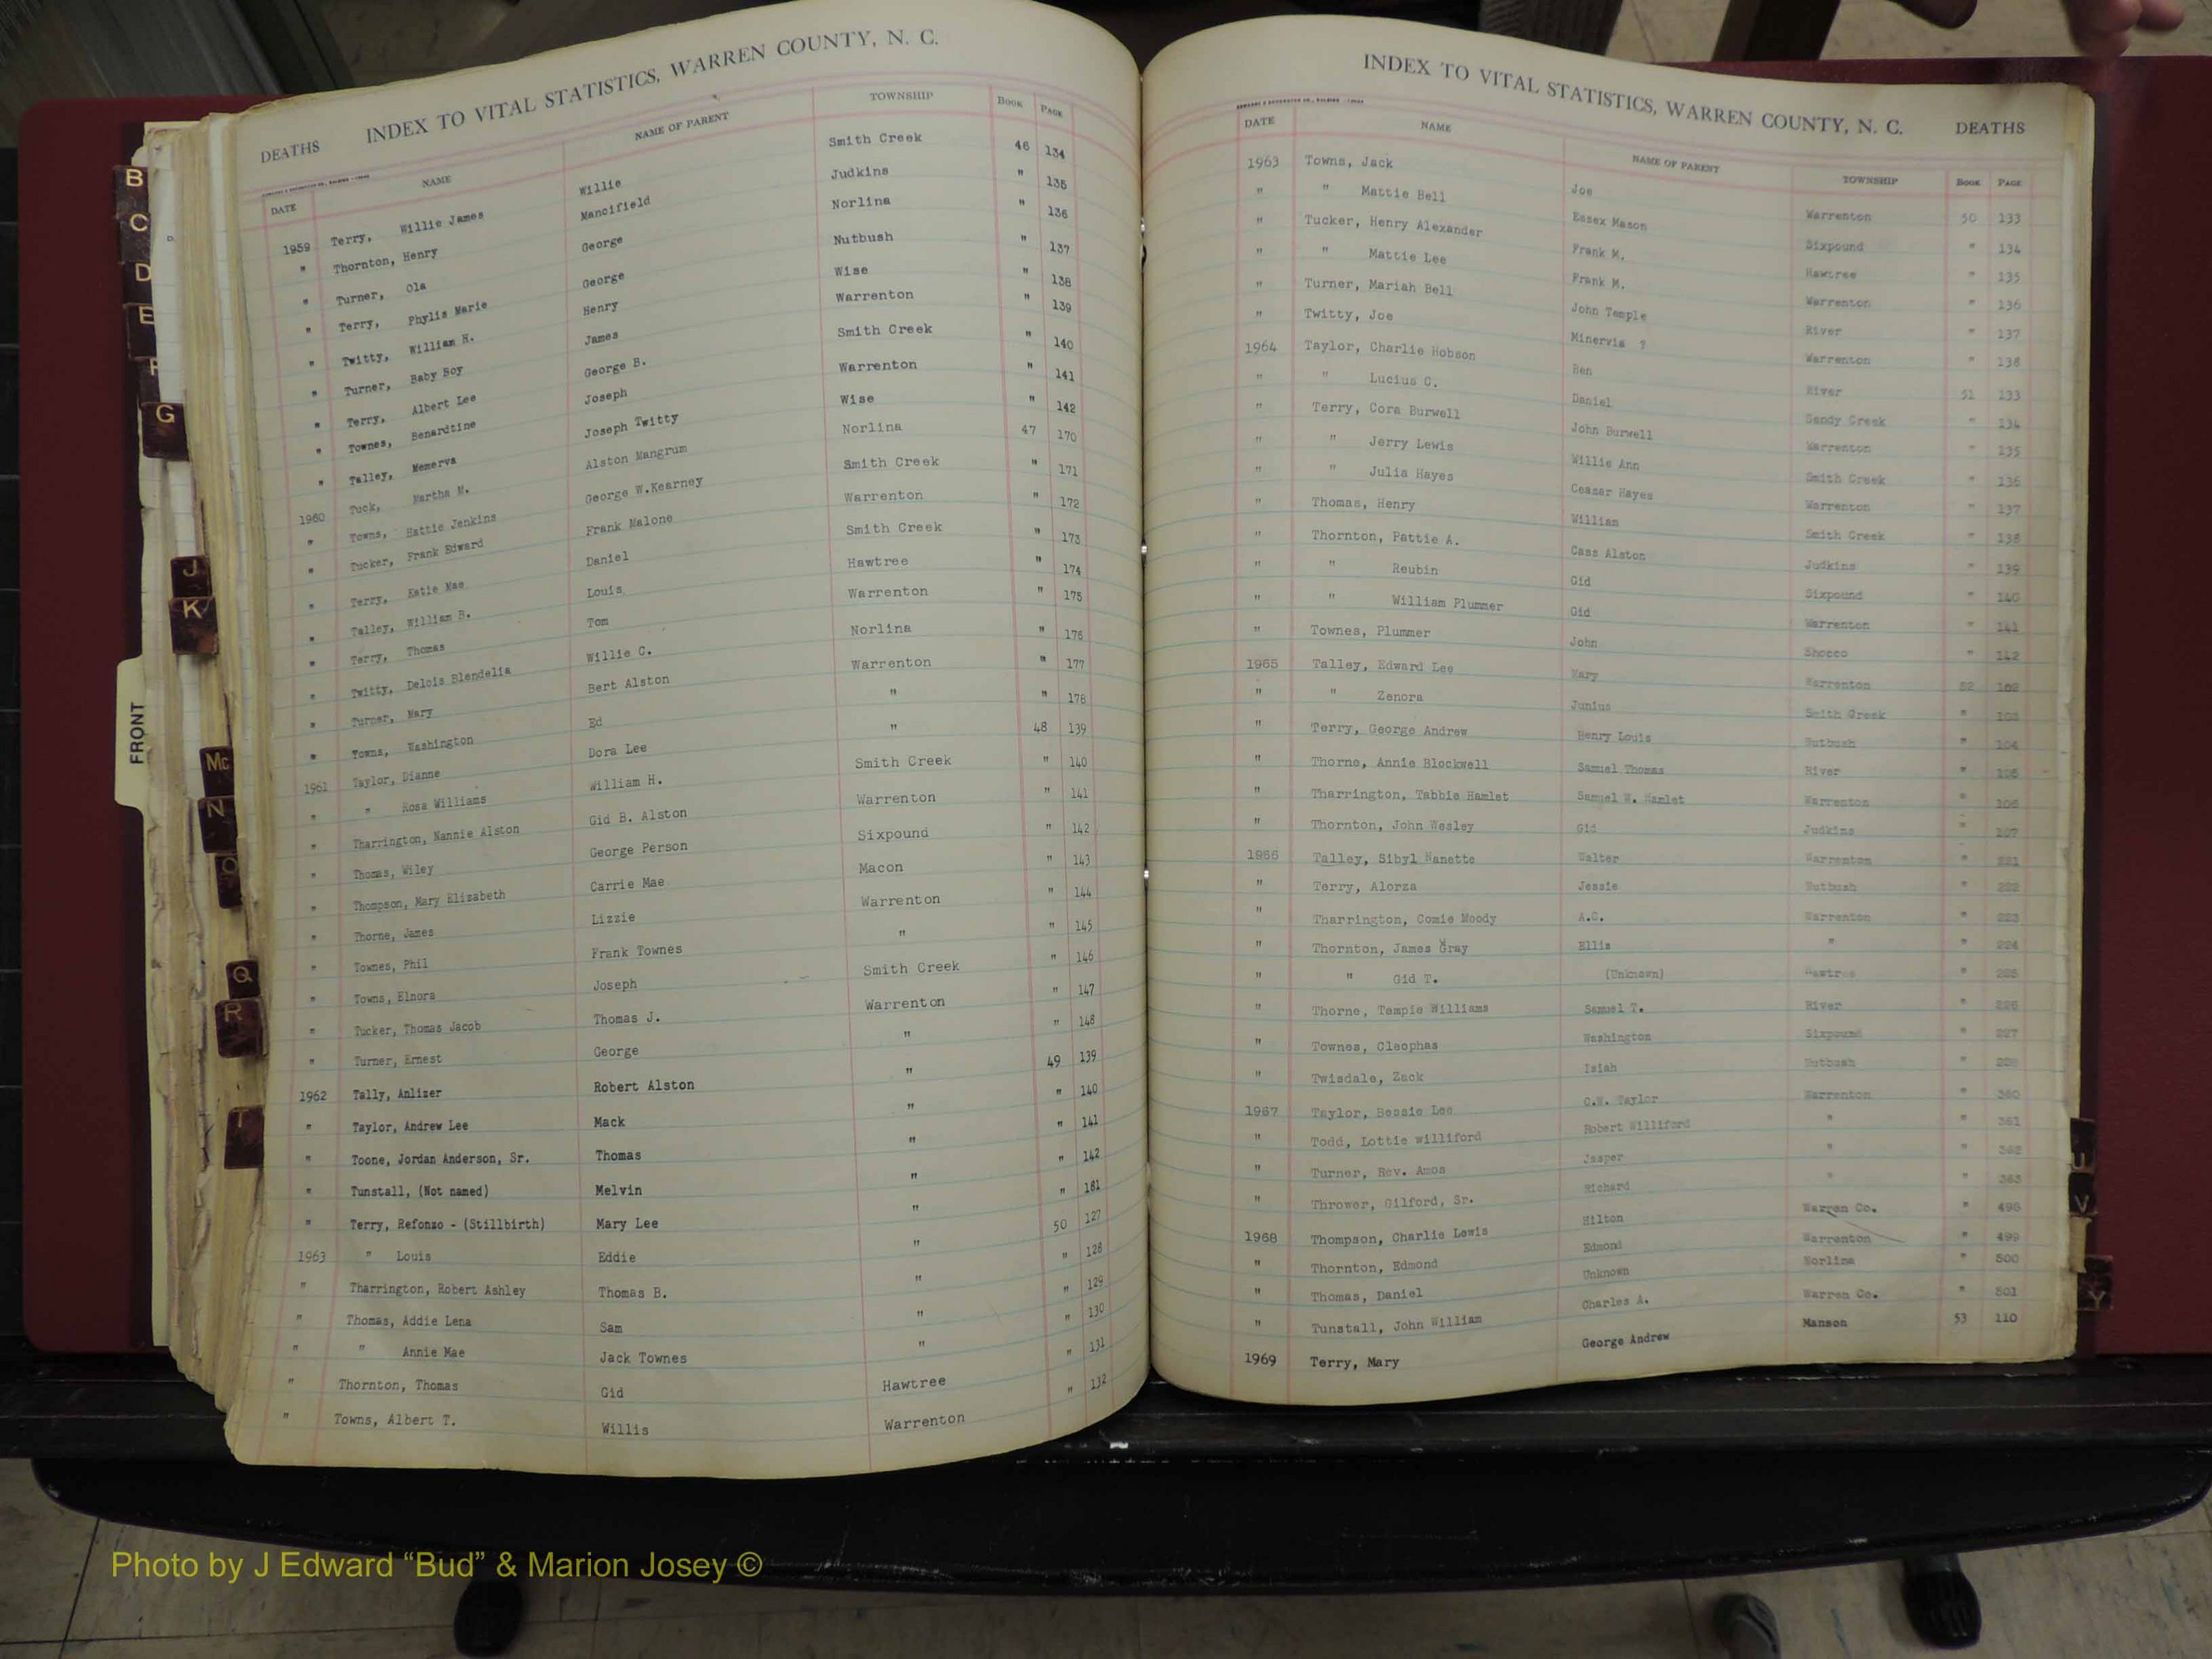 DEATHS INDEX TO VITAL STATISTICS, WARREN COUNTY, N. C.
DATE NAME NAME OF PARENT TOWNSHIP BOOK PAGE
1959 Terry, Willie James Willie Smith Creek 46 134
" Thornton, Henry Mancifield Judkins " 135
" Turner, Ola George Norlina " 136
" Terry, Phylis Marie George Nutbush " 137
" Twitty, William H. Henry Wise " 138
" Turner, Baby Boy James Warrenton " 139
" Terry, Albert Lee George B. Smith Creek " 140
" Townes, Benardtine Joseph Warrenton " 141
" Talley, Memerva Joseph Twitty Wise " 142
1960 Tuck, Martha M. Alston Mangrum Norlina 47 170
" Towns, Hattie Jenkins George W.Kearney Smith Creek " 171
" Tucker, Frank Edward Frank Malone Warrenton " 172
" Terry, Katie Mae Daniel Smith Creek " 173
" Talley, William B. Louis Hawtree " 174
" Terry, Thomas Tom Warrenton " 175
" Twitty, Delois Blendelia Willie C. Norlina " 176
" Turner, Mary Bert Alston Warrenton " 177
" Towns, Washington Ed " " 178
1961 Taylor, Dianne Dora Lee " 48 139
" " Rosa Williams William H. Smith Creek " 140
" Tharrington, Nannie Alston Gid B. Alston Warrenton " 141
" Thomas, Wiley George Person Sixpound " 142
" Thompson, Mary Elizabeth Carrie Mae Macon " 143
" Thorne, James Lizzie Warrenton " 144
" Townes, Phil Frank Townes " " 145
" Towns, Elnora Joseph Smith Creek " 146
" Tucker, Thomas Jacob Thomas J. Warrenton " 147
" Turner, Ernest George " " 148
1962 Tally, Anlizer Robert Alston " 49 139
" Taylor, Andrew Lee Mack " " 140
" Toone, Jordan Anderson, Sr. Thomas " " 141
" Tunstall, (Not named) Melvin " " 142
" Terry, Refonzo - (Stillbirth) Mary Lee " " 181
1963 " Louis Eddie " 50 127
" Tharrington, Robert Ashley Thomas B. " " 128
" Thomas, Addie Lena Sam " " 129
" " Annie Mae Jack Townes " " 130
" Thornton, Thomas Gid Hawtree " 131
" Towns, Albert T. Willis Warrenton " 132
INDEX TO VITAL STATISTICS, WARREN COUNTY, N. C. DEATHS
DATE NAME NAME OF PARENT TOWNSHIP BOOK PAGE
1963 Towns, Jack Joe Warrenton 50 133
" " Mattie Bell Essex Mason Sixpound " 134
" Tucker, Henry Alexander Frank M. Hawtree " 135
" " Mattie Lee Frank M. Warrenton " 136
" Turner, Mariah Bell John Temple River " 137
" Twitty, Joe Minervia ? Warrenton " 138
1964 Taylor, Charlie Hobson Ben River 51 133
" " Lucius C. Daniel Sandy Creek " 134
" Terry, Cora Burwell John Burwell Warrenton " 135
" " Jerry Lewis Willie Ann Smith Creek " 136
" " Julia Hayes Ceazar Hayes Warrenton " 137
" Thomas, Henry William Smith Creek " 138
" Thornton, Pattie A. Cass Alston Judkins " 139
" " Reubin Gid Sixpound " 140
" " William Plummer Gid Warrenton " 141
" Townes, Plummer John Shocco " 142
1965 Talley, Edward Lee Mary Warrenton 52 102
" " Zenora Junius Smith Creek " 103
" Terry, George Andrew Henry Louis Nutbush " 104
" Thorne, Annie Blockwell Samuel Thomas River " 105
" Tharrington, Tabbie Hamlet Samuel W. Hamlet Warrenton " 106
" Thornton, John Wesley Gid Judkins " 107
1966 Talley, Sibyl Nanette Walter Warrenton " 221
" Terry, Alorza Jessie Nutbush " 222
" Tharrington, Comie Moody A.C. Warrenton " 223
" Thornton, James Gray Ellis " " 224
" " Gid T. (Unknown) Hawtree " 225
" Thorne, Tempie Williams Samuel T. River " 226
" Townes, Cleophas Washington Sixpound " 227
" Twisdale, Zack Isiah Nutbush " 228
1967 Taylor, Bessie Lee C.W. Taylor Warrenton " 360
" Todd, Lottie williford Robert Williford " " 361
" Turner, Rev. Amos Jasper " " 362
" Thrower, Gilford, Sr. Richard " " 363
1968 Thompson, Charlie Lewis Hilton Warren Co. " 498
" Thornton, Edmond Edmond Warrenton " 499
" Thomas, Daniel Unknown Norlina " 500
" Tunstall, John William Charles A. Warren Co. " 501
1969 Terry, Mary George Andrew Manson 53 110
B
C
D
E
F
G
J
K
FRONT
Mc
N
O
Q
R
T
U
V
Y
Photo by J Edward “Bud” & Marion Josey ©